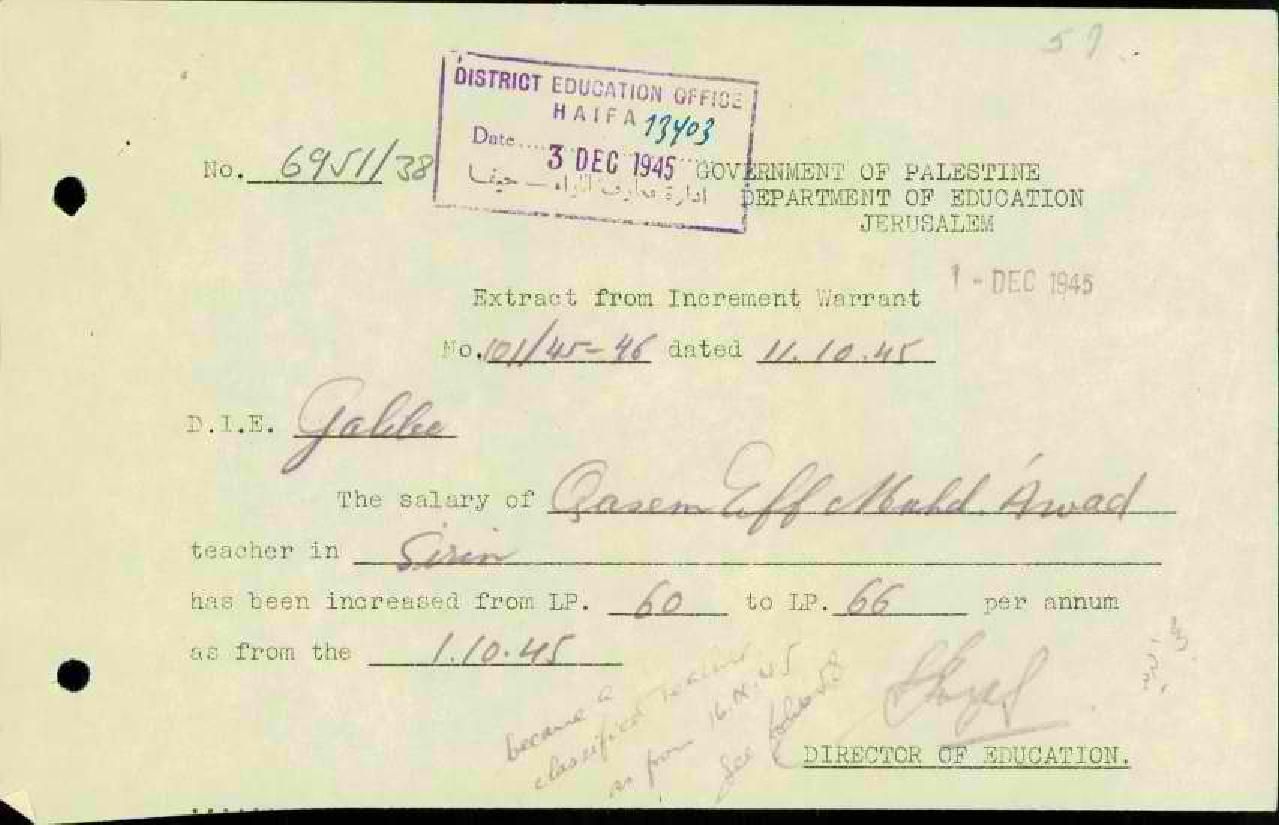 57
DISTRICT EDUCATION OFFICE
HAIFA 13403
Date.....3 DEC 1945
ادارة معارف اللواء — حيفا
No. 6951/38
GOVERNMENT OF PALESTINE
DEPARTMENT OF EDUCATION
JERUSALEM
1 - DEC 1945
Extract from Increment Warrant
No. 101/45-46 dated 11.10.45
D.I.E. Galilee
The salary of Qasem Eff Mohd. Awad
teacher in Sirin
has been increased from LP. 60 to LP. 66 per annum
as from the 1.10.45
became a
classified teacher
as from 16.IX.45
See folio 58
DIRECTOR OF EDUCATION.